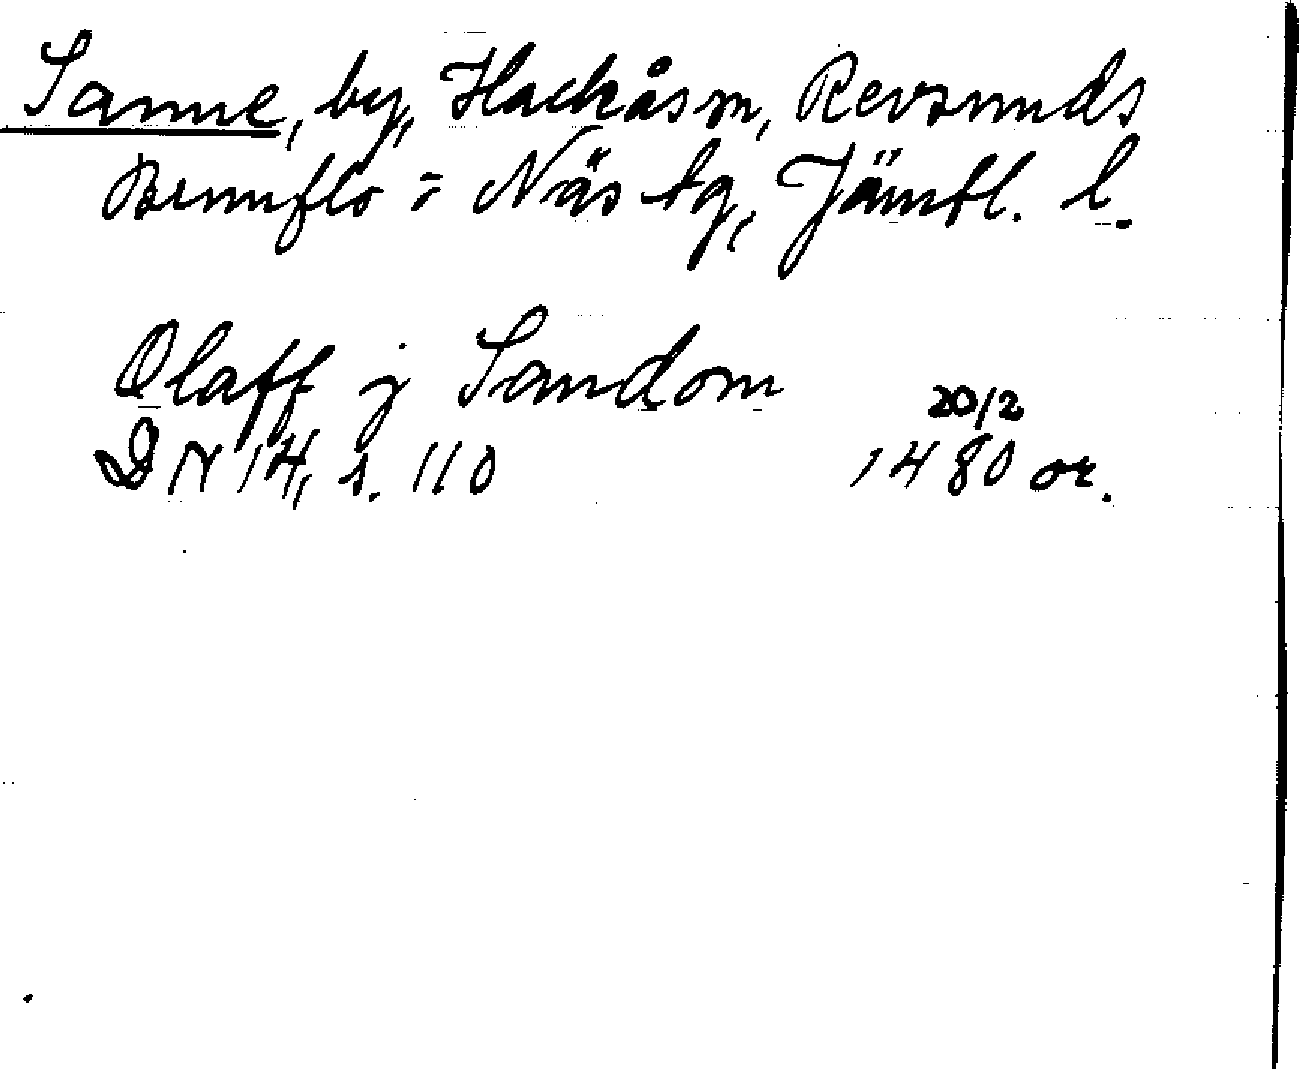 Sanne, by, Hackås sn, Revsunds
Brunflo = Näs tg, Jämtl. l.
Olaff j Sandom
20/2
DN 14, s. 110 1480 or.